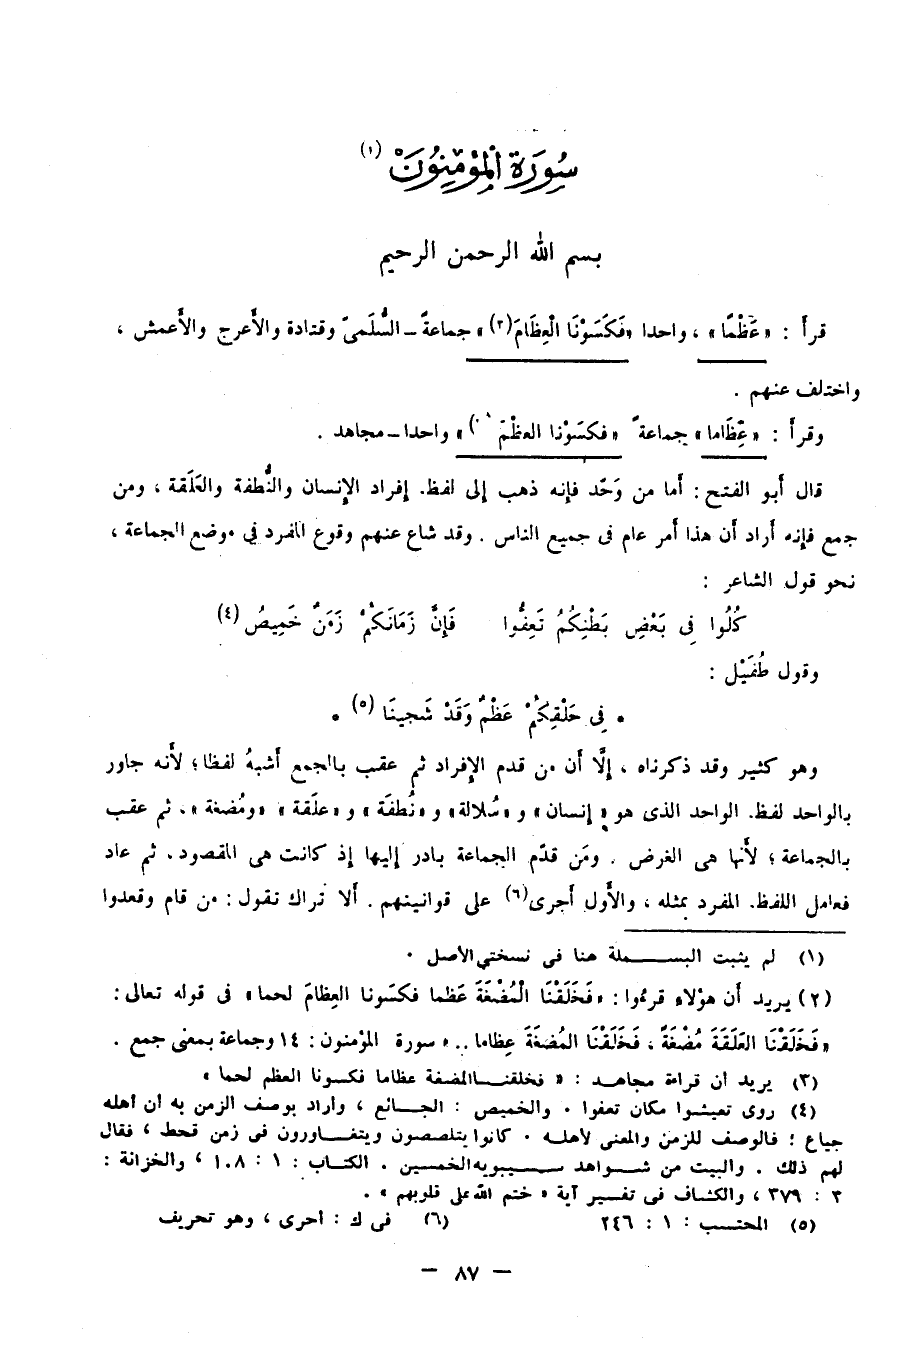 سُورَة المُؤْمِنُونَ (١)
بسم الله الرحمن الرحيم
قرأ : « عَظْمًا » ، واحدا «فَكَسَوْنَا الْعِظَامَ(٢)» جماعةً ــ السُّلَمىّ وقتادة والأَعرج والأَعمش ،
واختلف عنهم .
وقرأ : « عِظَاما » جماعةً «فكسَوْنا العظْمَ )» واحدا ــ مجاهد .
قال أبو الفتح : أما من وَحّد فإنه ذهب إلى لفظ. إفراد الإنسان والنُّطفة والعَلَقة ، ومن
جمع فإنه أراد أن هذا أمر عام فى جميع الناس . وقد شاع عنهم وقوع المفرد فى موضع الجماعة ،
نحو قول الشاعر :
كُلُوا فِى بَعْضِ بَطْنِكُمُ تَعِفُّوا فَإِنَّ زَمَانَكُمْ زَمَنٌ خَمِيصُ (٤)
وقول طُفَيْل :
• فِى حَلْقِكُمْ عَظْمٌ وَقَدْ شَجِينَا (٥) •
وهو كثير وقد ذكرناه ، إلَّا أن من قدم الإفراد ثم عقب بالجمع أشبهُ لفظا ؛ لأَنه جاور
بالواحد لفظ. الواحد الذى هو « إنسان » و «سُلالة» و «نُطفَة » و « علَقة » «ومُضغة ». ثم عقب
بالجماعة ؛ لأَنها هى الغرض . ومَن قدّم الجماعة بادر إليها إذ كانت هى المقصود. ثم عاد
فعامل اللفظ. المفرد بمثله ، والأَول أجرى(٦) على قوانينهم . ألا تراك تقول : من قام وقعدوا
(١) لم يثبت البسملة هنا فى نسختي الأصل .
(٢) يريد أن هؤلاء قرءوا : «فَخَلَقْنَا الْمُضْغَةَ عَظما فكسَونا العِظامَ لحما» فى قوله تعالى :
«فَخَلَقْنَا العَلَقَةَ مُضْغَةً ، فَخَلَقْنَا المُضغَةَ عِظاما .. » سورة المؤمنون : ١٤ وجماعة بمعنى جمع .
(٣) يريد أن قراءة مجاهد : « فخلقنا المضغة عظاما فكسونا العظم لحما »
(٤) روى تعيشوا مكان تعفوا . والخميص : الجائع ، وأراد بوصف الزمن به أن أهله
جياع ؛ فالوصف للزمن والمعنى لأهله . كانوا يتلصصون ويتغاورون فى زمن قحط ، فقال
لهم ذلك . والبيت من شواهد سيبويه الخمسين . الكتاب : ١ : ١٠٨ ، والخزانة :
٣ : ٣٧٩ ، والكشاف فى تفسير آية « ختم الله على قلوبهم » .
(٥) المحتسب : ١ : ٢٤٦ (٦) فى ك : أحرى ، وهو تحريف
— ٨٧ —